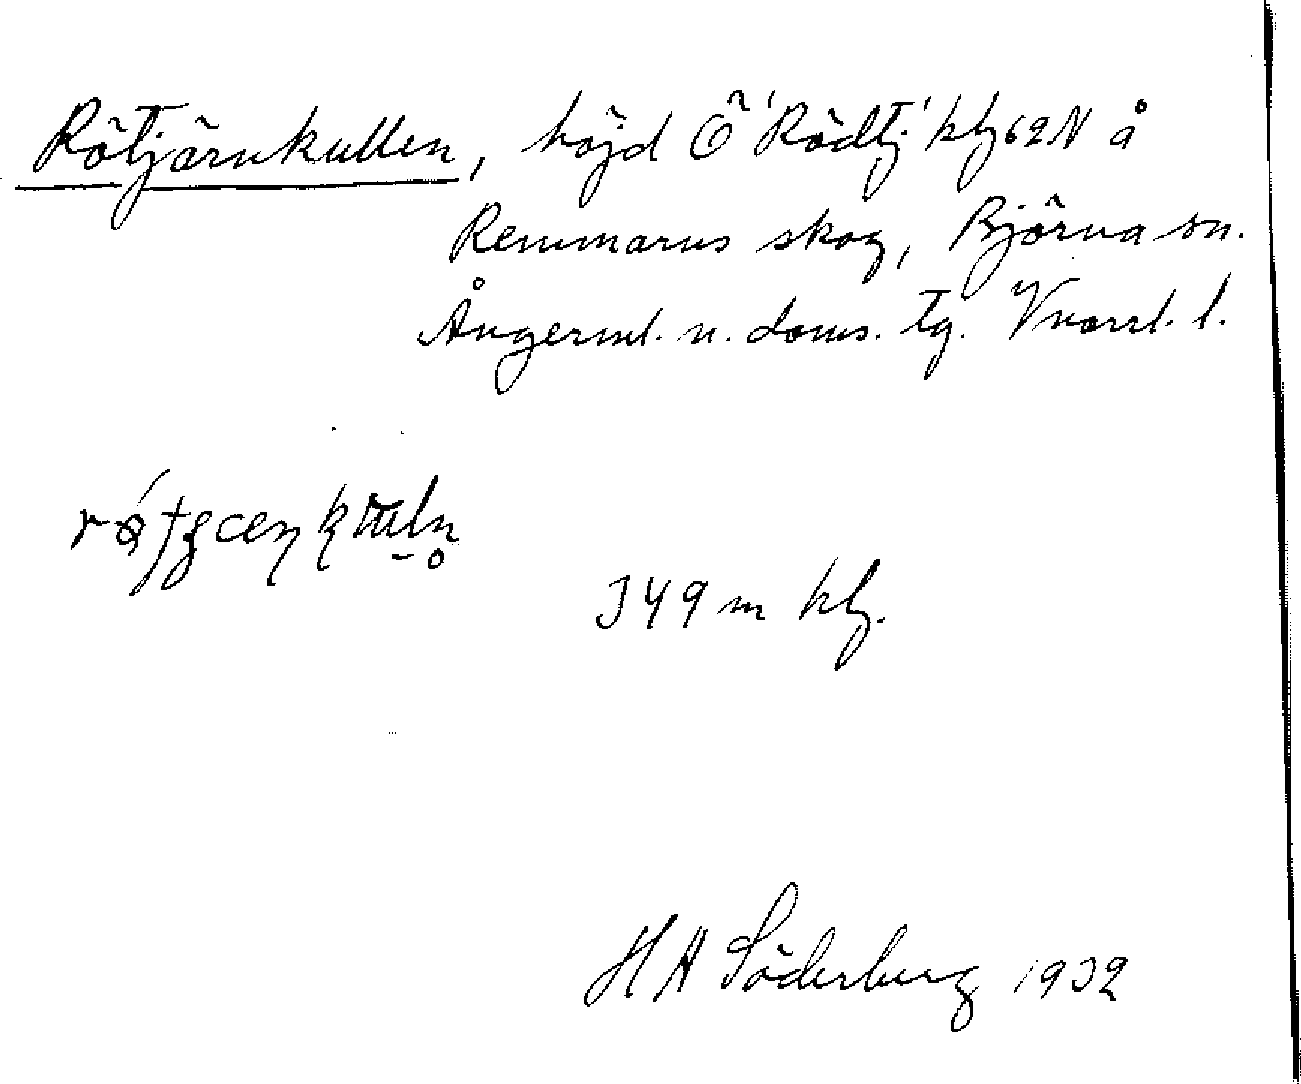 Rötjärnkullen, höjd Ö 'Rödtj.' kbl 62 N å
Remmarns skog, Björna sn.
Ångerml. n. doms. tg. Vnorrl. l.
349 m kbl.
H A Söderberg 1932